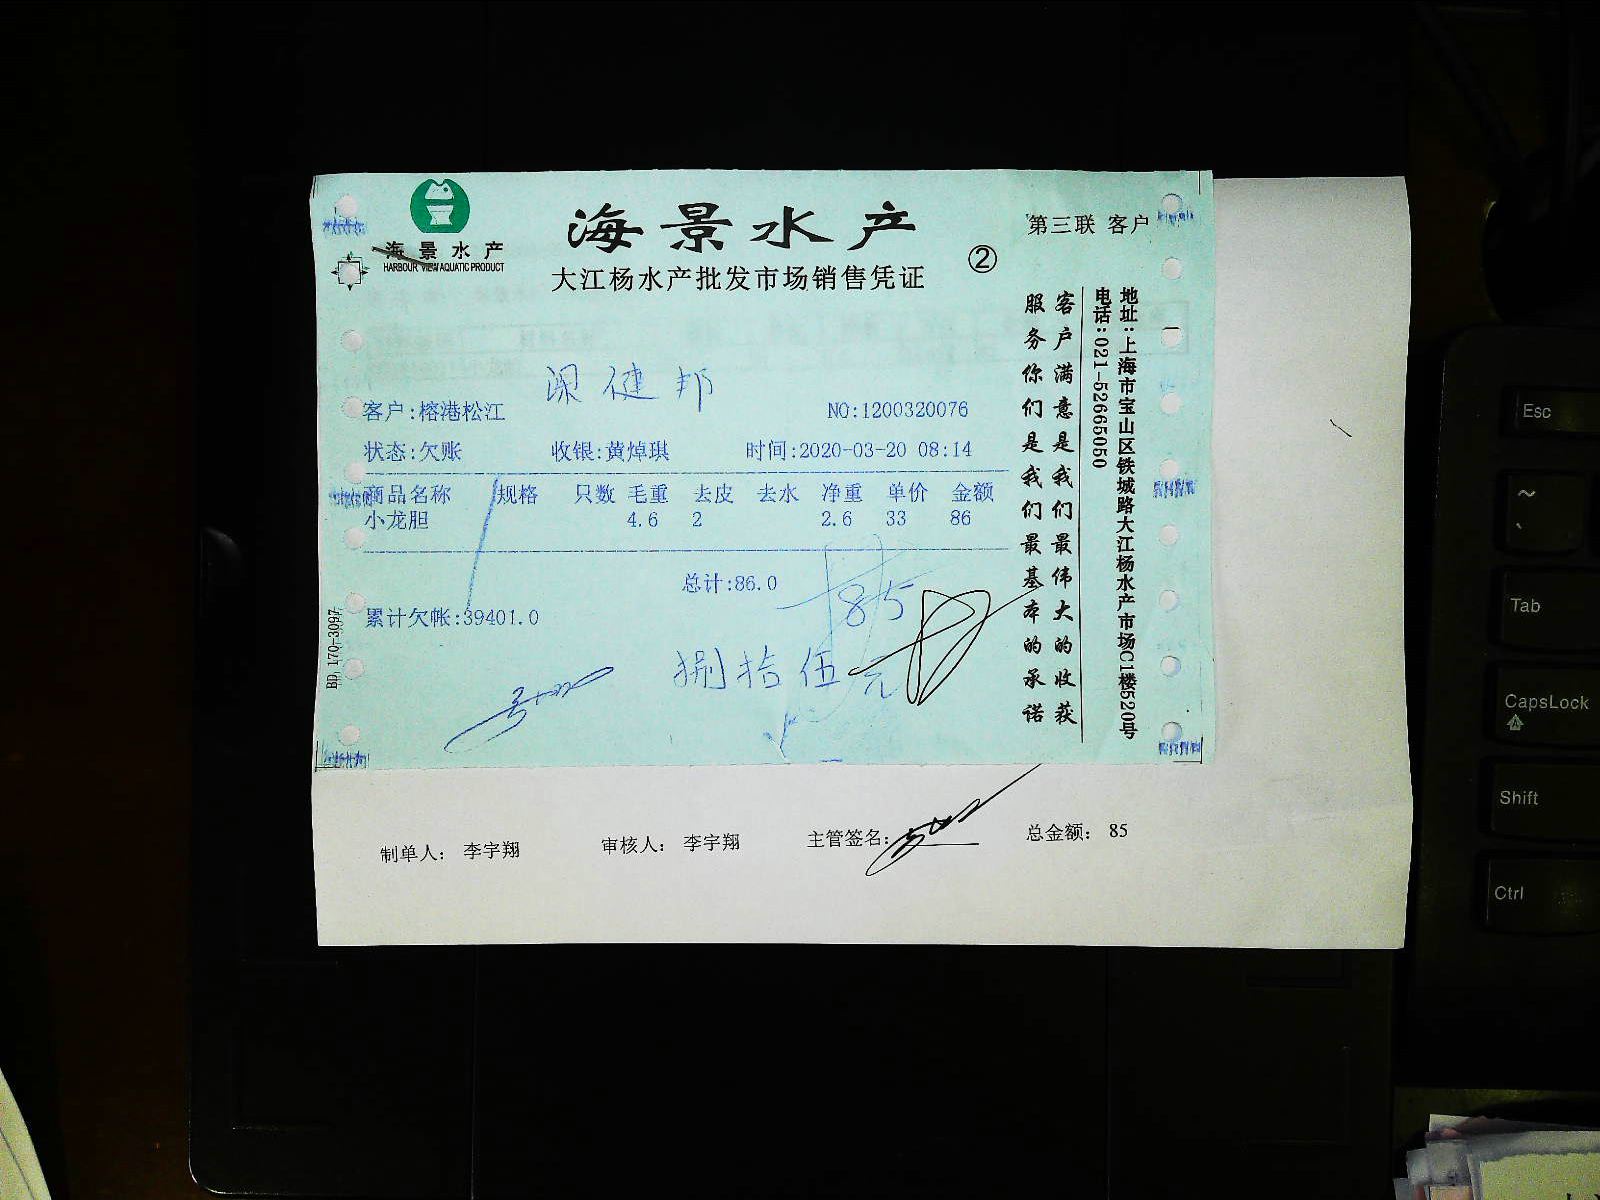 海景水产
HARBOUR VIEW AQUATIC PRODUCT
海景水产
大江杨水产批发市场销售凭证
②
第三联 客户
梁健邦
客户:榕港松江
NO:1200320076
状态:欠账 收银:黄焯琪 时间:2020-03-20 08:14
商品名称 规格 只数 毛重 去皮 去水 净重 单价 金额
小龙胆 4.6 2 2.6 33 86
总计:86.0
85
累计欠帐:39401.0
捌拾伍元
BD 170-3097
客户满意是我们最伟大的收获
服务你们是我们最基本的承诺
地址:上海市宝山区铁城路大江杨水产市场C1楼520号
电话:021-52665050
制单人: 李宇翔 审核人: 李宇翔 主管签名: 总金额: 85
Esc
~
`
Tab
CapsLock
Shift
Ctrl